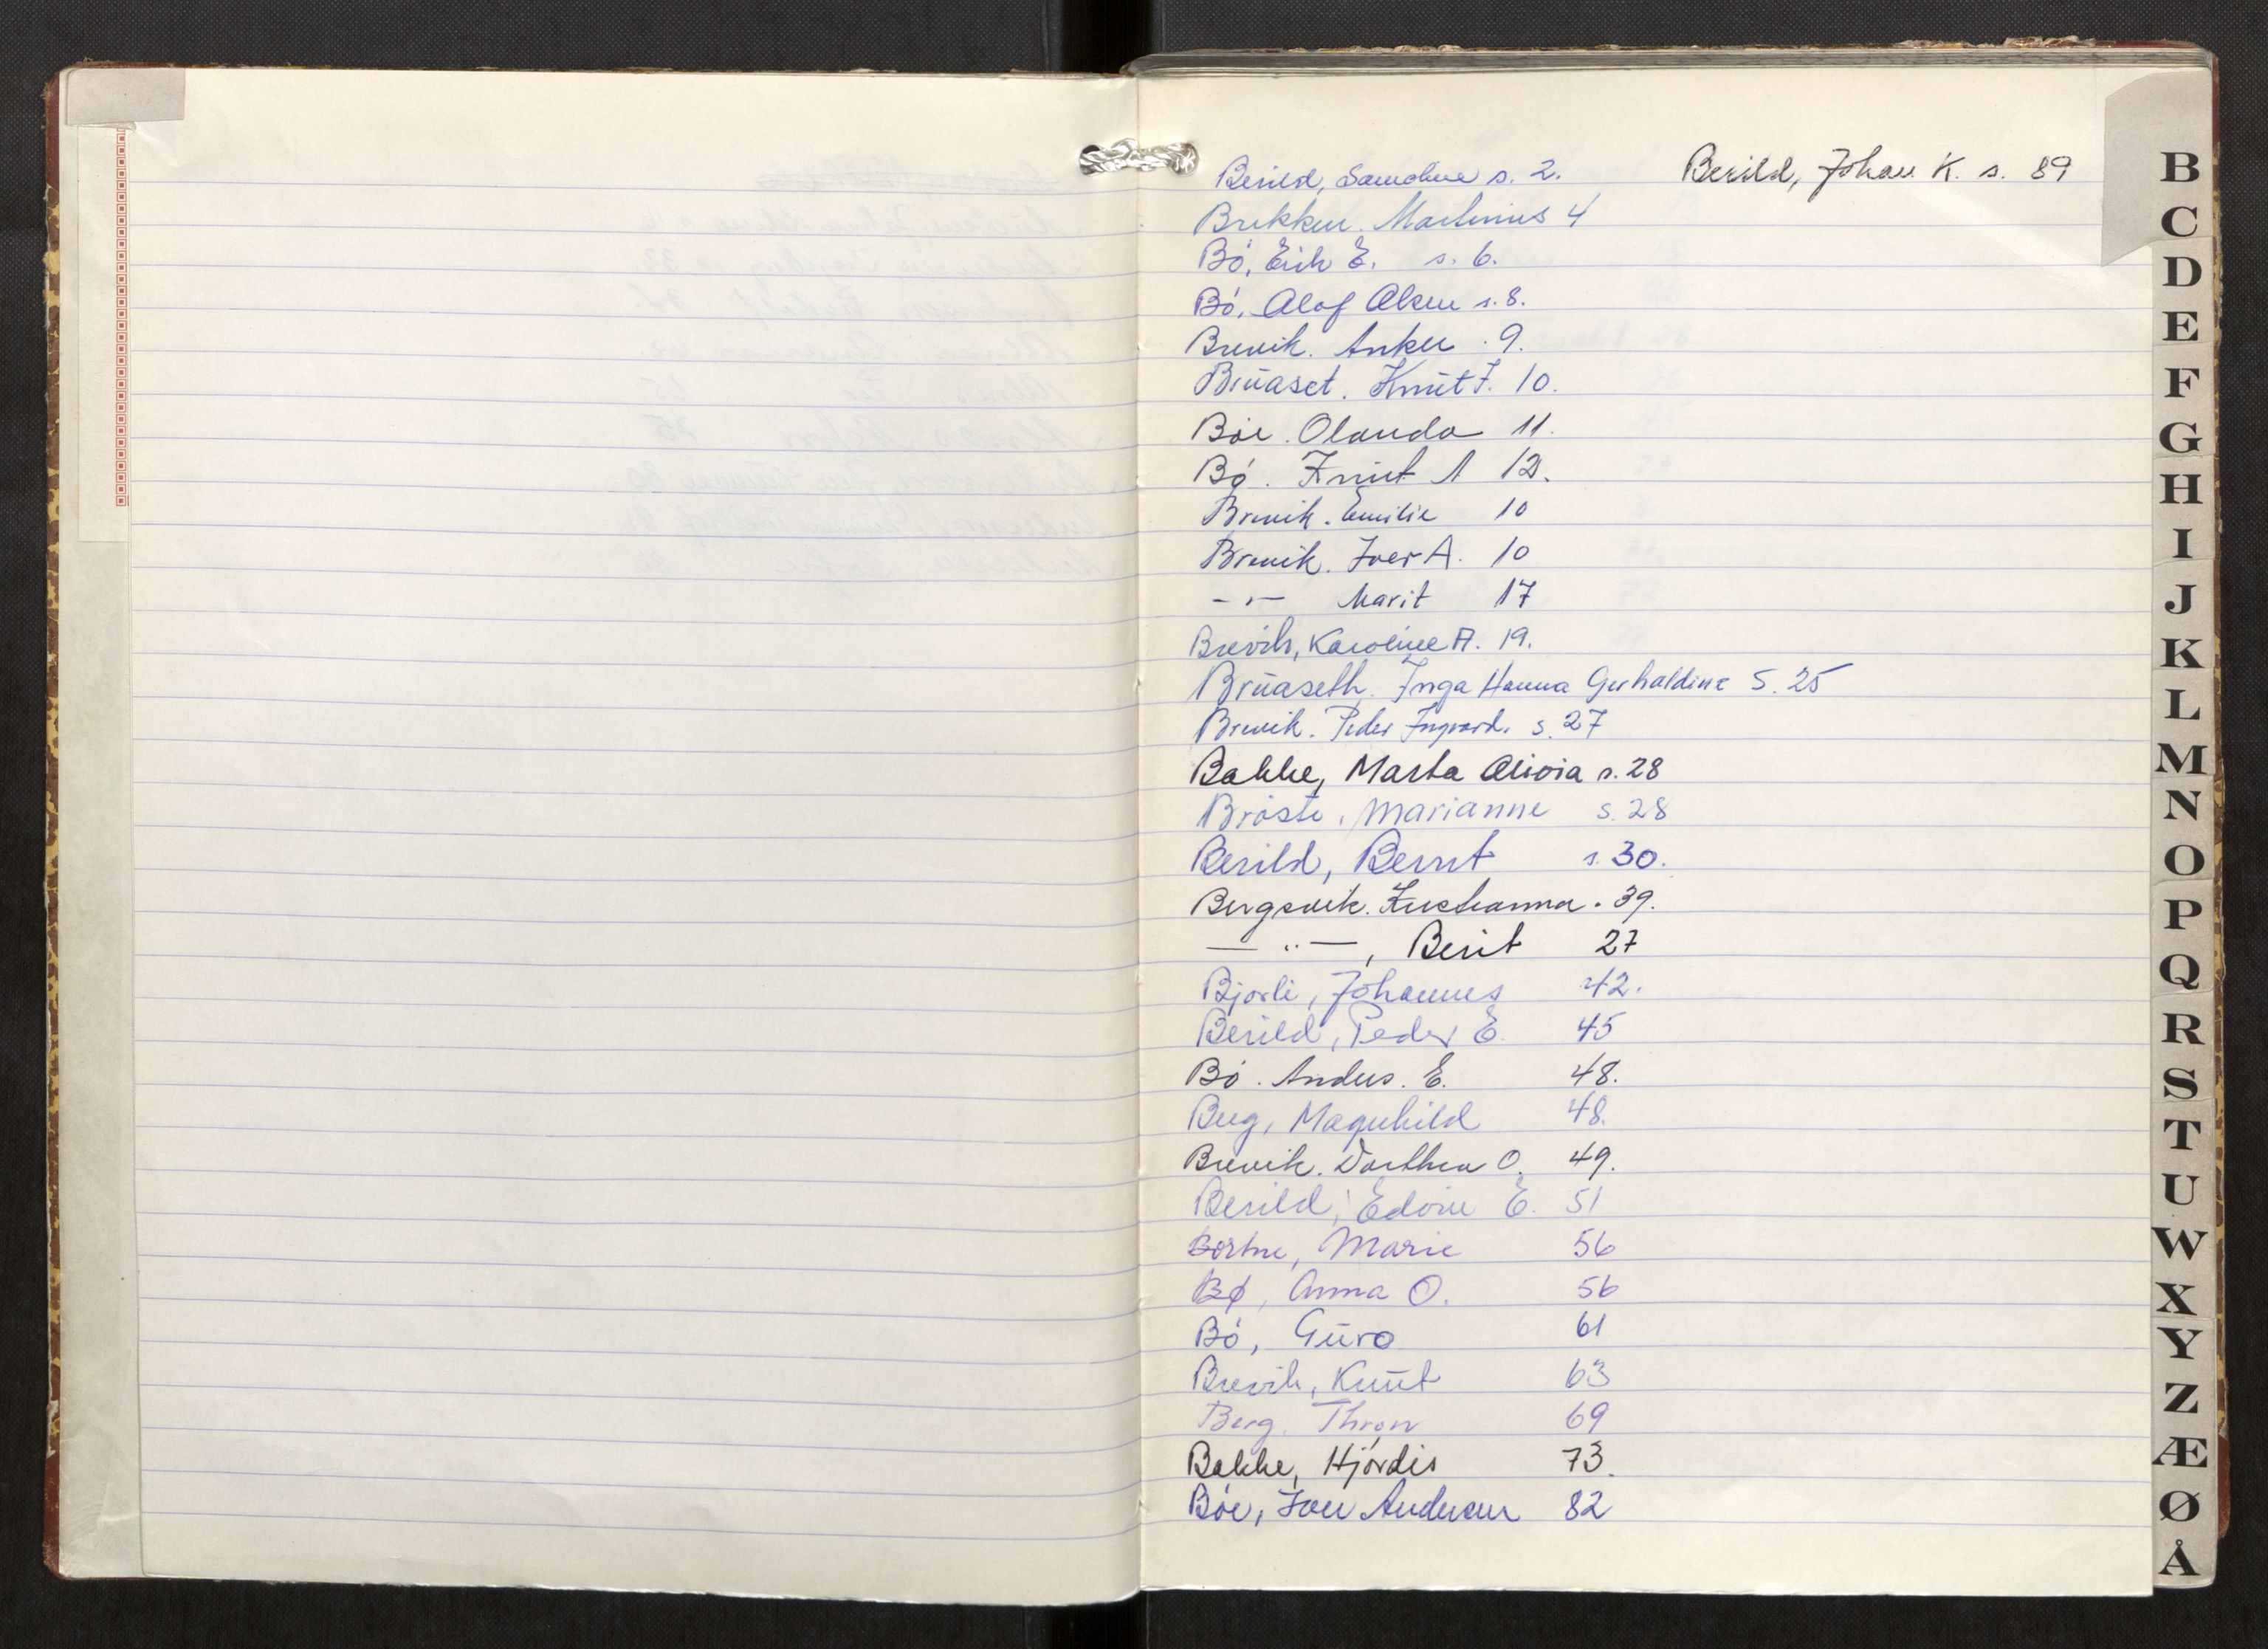 Berild, Samoline s. 2.
Berild, Johan K. s. 89
Brekken. Martinius 4
Bó, Erik E. s. 6.
Bó, Olof Olsen s. 8.
Brevik. Anker . 9.
Brŭaset. Knŭt J. 10.
Bóe. Olauda 11.
Bó. Knut A 12.
Brevik. Emilie 10
Brevik. Iver A. 10
- " - Marit 17
Brevik, Karoline A. 19.
Brŭaseth. Inga Hanna Gerhaldine S. 25
Brevik. Peder Ingvard. s. 27
Bakke, Marta Olivia s. 28
Bróste, Marianne s. 28
Berild, Bernt s. 30.
Bergsvik. Kristianna . 39.
— " —, Berit 27
Bjorli, Johannes 42.
Berild, Peder E. 45
Bó. Anders. E. 48.
Berg, Magnhild 48.
Brevik. Dorthea O. 49.
Berild, Edvin E. 51
Bortne, Marie 56
Bø, Anna O. 56
Bó, Gŭro 61
Brevik, Knŭt 63
Berg, Thron 69
Bakke, Hjórdis 73.
Bóe, Iver Andersen 82
B
C
D
E
F
G
H
I
J
K
L
M
N
O
P
Q
R
S
T
U
W
X
Y
Z
Æ
Ø
Å